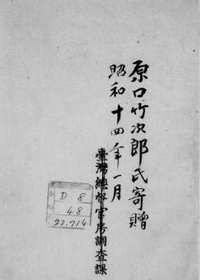 原口竹次郎氏寄贈
昭和十四年一月
臺灣總督官房調査課
D 8
48
22,714